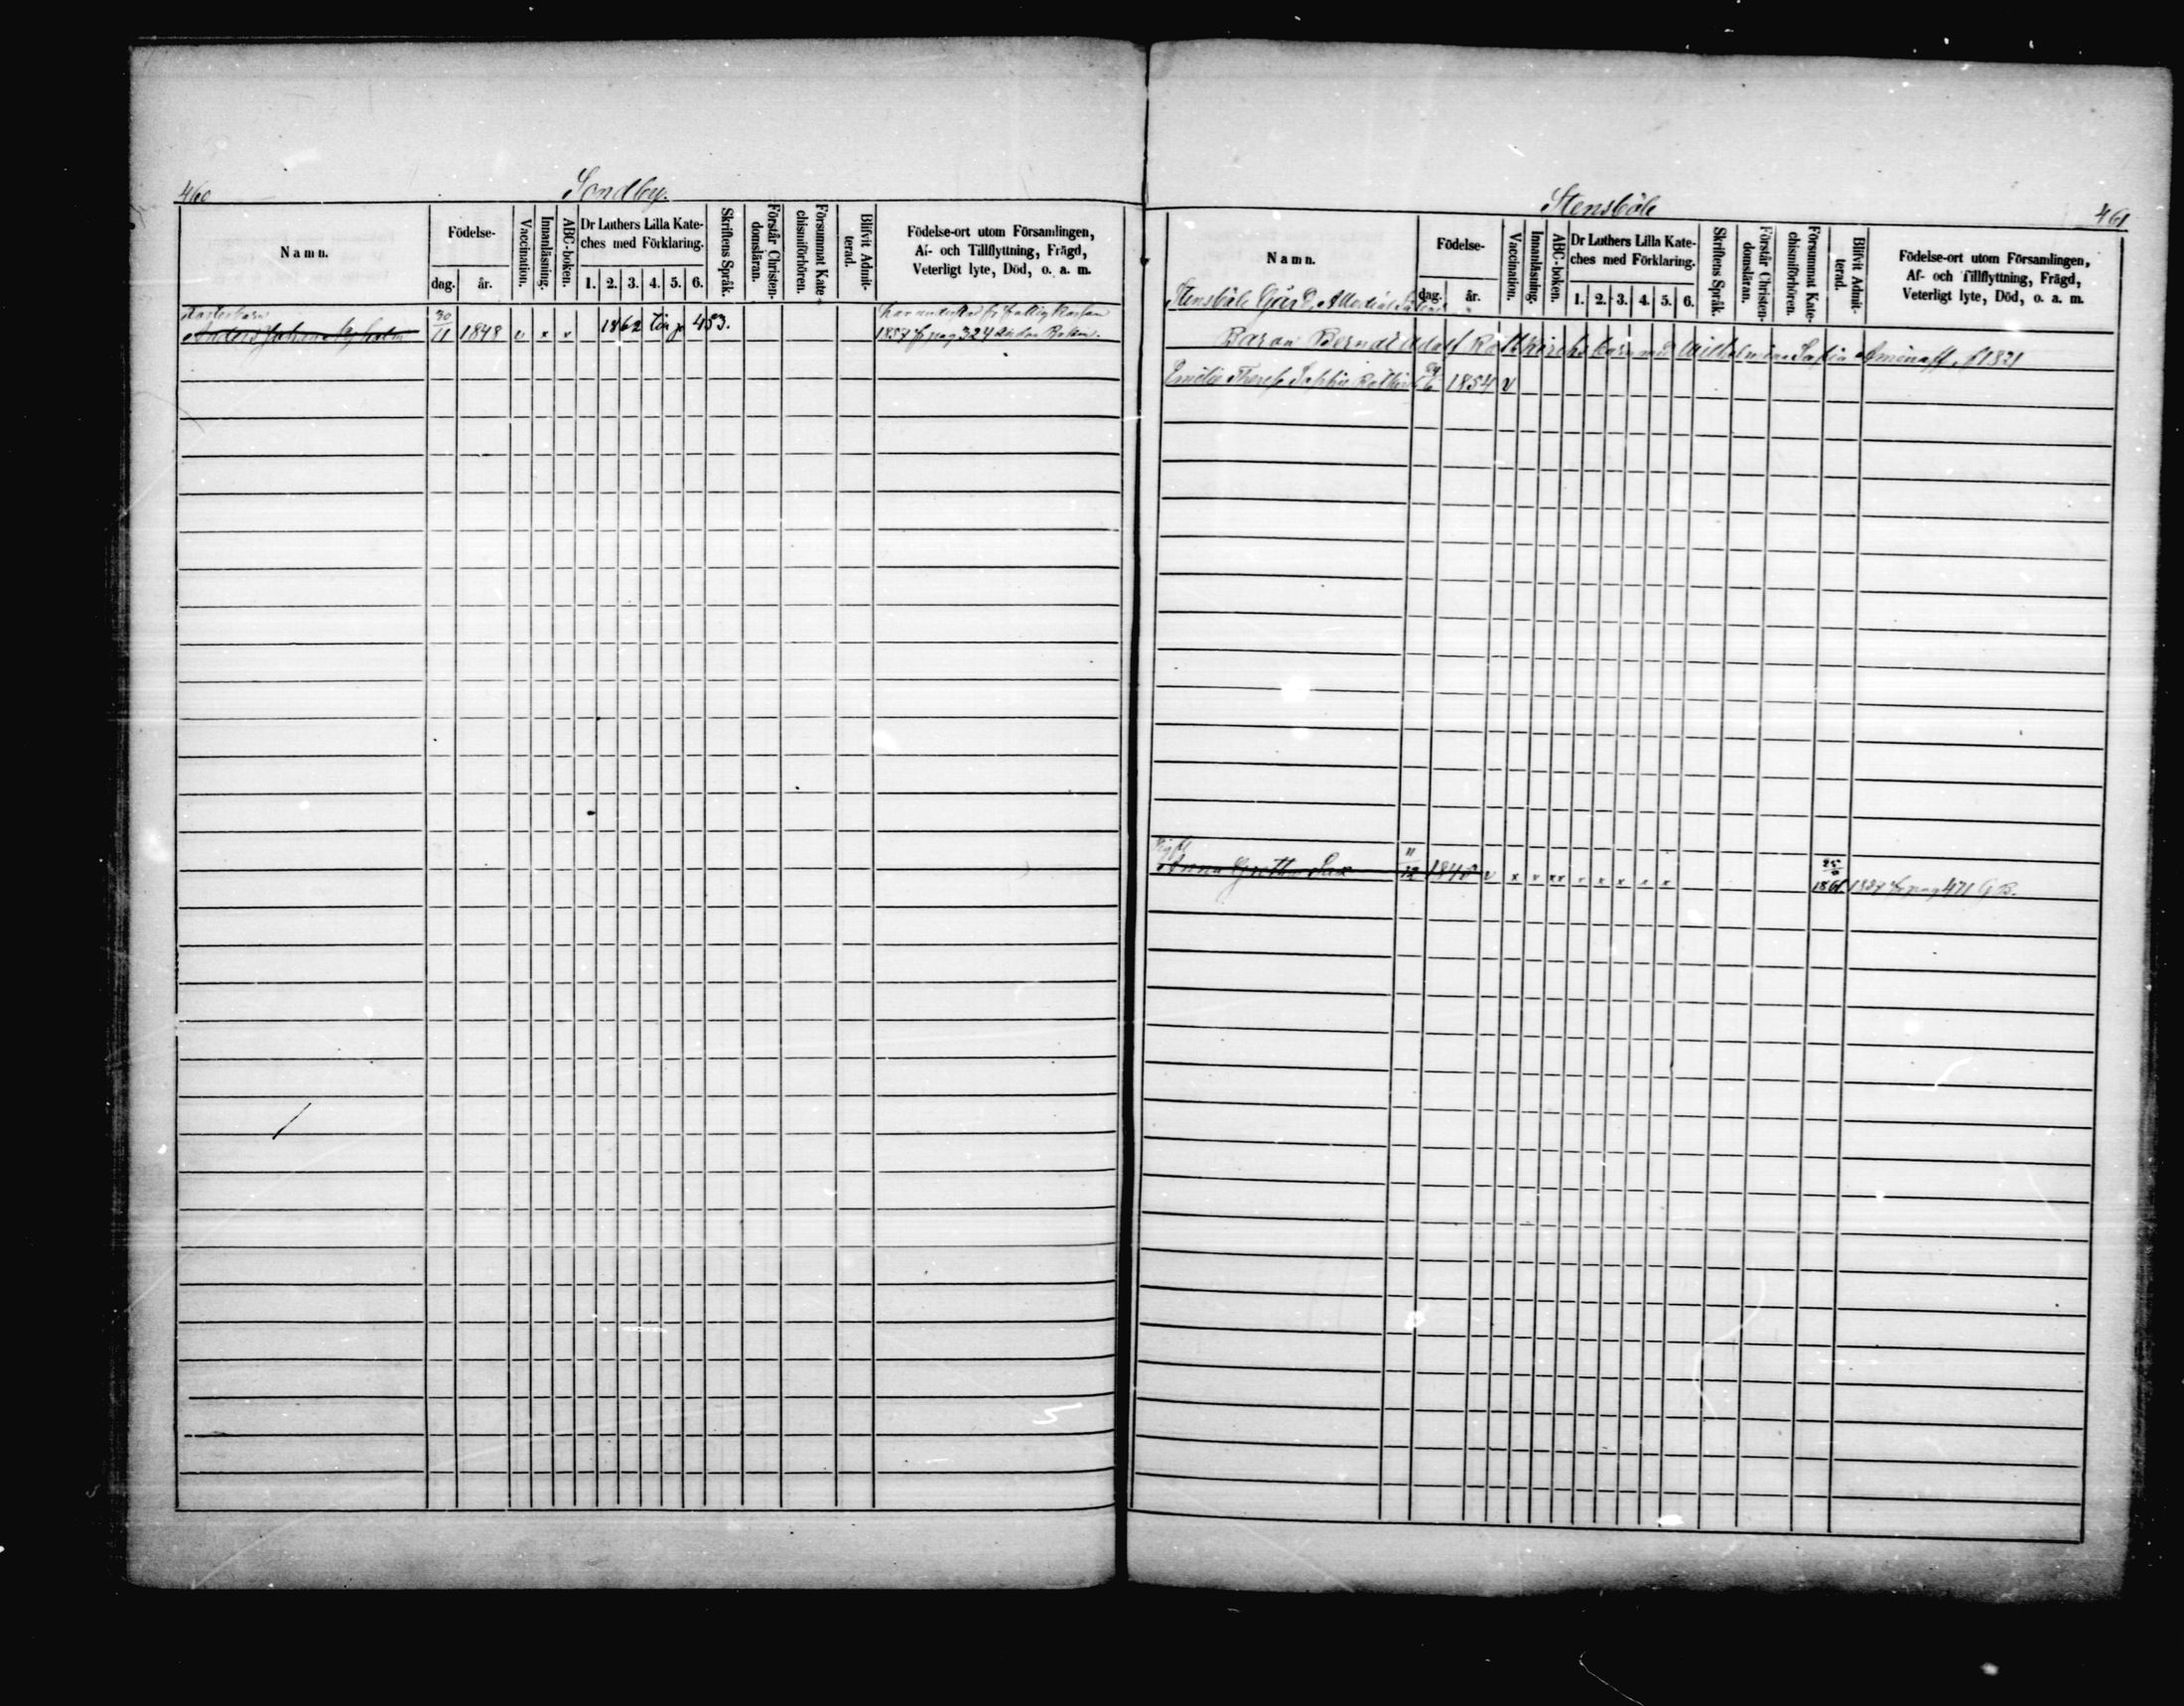 460
Sondby.
Namn.
Födelse-
dag.
år.
Vaccination.
Innanläsning.
ABC-boken.
Dr Luthers Lilla Kate-
ches med Förklaring.
1. 2. 3. 4. 5. 6.
Skriftens Språk.
Förstår Christen-
domsläran.
Försummat Kate-
chismiförhören.
Blifvit Admit-
terad.
Födelse-ort utom Församlingen,
Af- och Tillflyttning, Frägd,
Veterligt lyte, Död, o. a. m.
Anders Johan Nyholm 30/11 1848 v x v 1862 till p 453.
1857 fr pag 324
Stensböle
461
Namn.
Födelse-
dag.
år.
Vaccination.
Innanläsning.
ABC-boken.
Dr Luthers Lilla Kate-
ches med Förklaring.
1. 2. 3. 4. 5. 6.
Skriftens Språk.
Förstår Christen-
domsläran.
Försummat Kate-
chismiförhören.
Blifvit Admit-
terad.
Födelse-ort utom Församlingen,
Af- och Tillflyttning, Frägd,
Veterligt lyte, Död, o. a. m.
Stensböle Gård,
Baron Berndt Adolf Rotkirch Wilhelmina Sofia Aminoff f 1821
Emelie Therese Sophie 1854 v
Pig
Anna Greta 11/12 184 v x v xx v x x x x 1861 fr pag 471